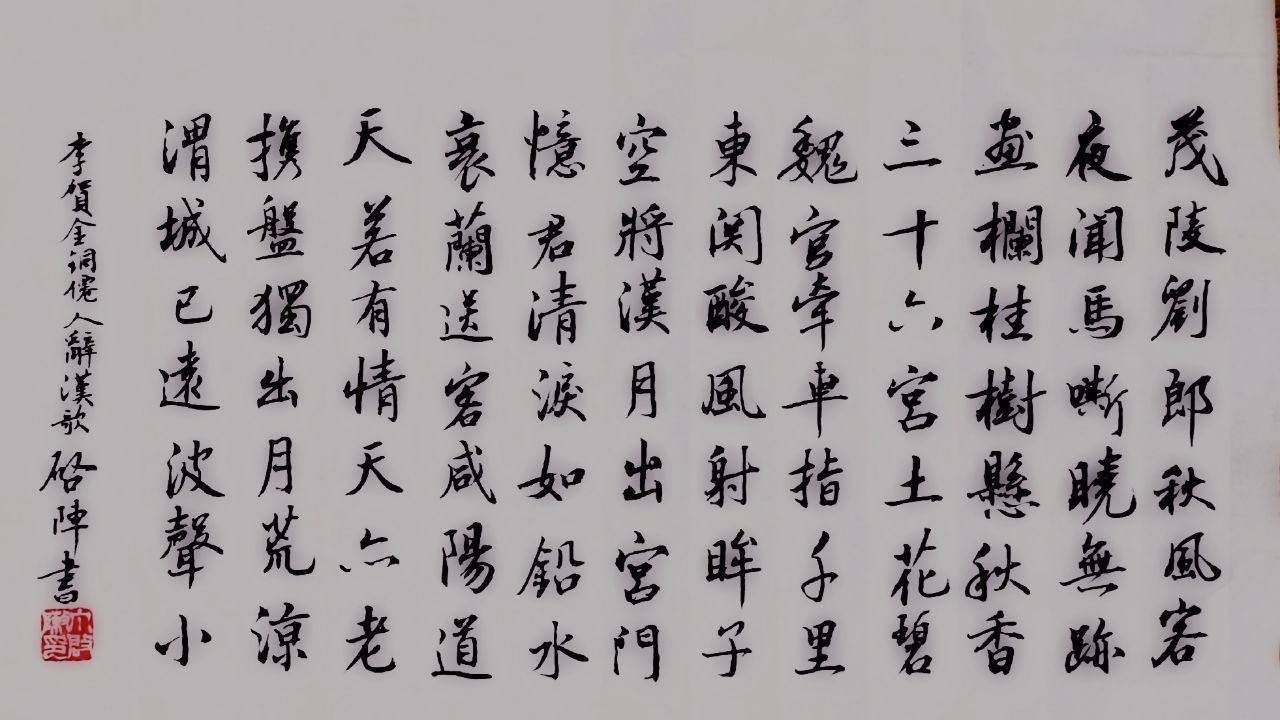 茂陵劉郎秋風客
夜聞馬嘶曉無跡
畫欄桂樹懸秋香
三十六宮土花碧
魏官牽車指千里
東関酸風射眸子
空將漢月出宮門
憶君清淚如鉛水
衰蘭送客咸陽道
天若有情天亦老
攜盤獨出月荒涼
渭城已遠波聲小
李賀金銅僊人辭漢歌 啓陣書